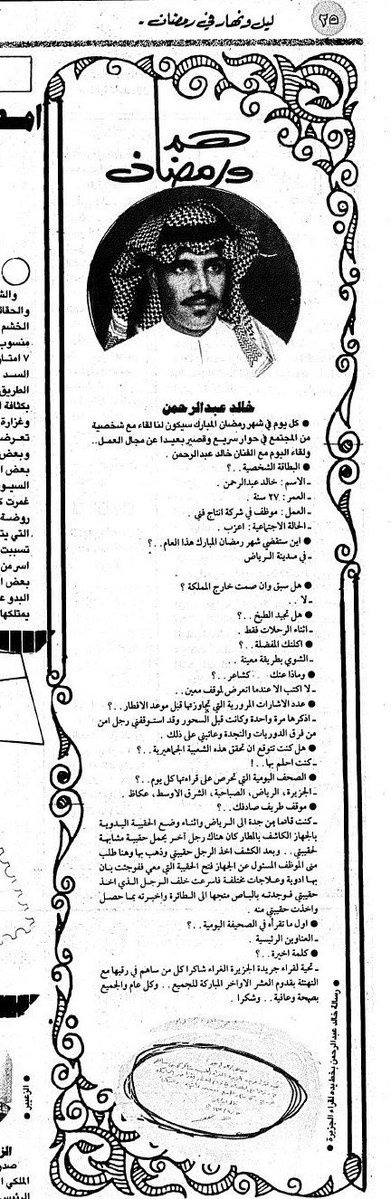 ٢٥
ليل ونهار في رمضان -
هم
ورمضان
خالد عبدالرحمن
● كل يوم في شهر رمضان المبارك سيكون لنا لقاء مع شخصية
من المجتمع في حوار سريع وقصير بعيدا عن مجال العمل..
ولقاء اليوم مع الفنان خالد عبدالرحمن.
● البطاقة الشخصية..؟
ـ الاسم : خالد عبدالرحمن.
ـ العمر : ٢٧ سنة.
ـ العمل : موظف في شركة انتاج فني.
ـ الحالة الاجتماعية : اعزب.
● اين ستقضي شهر رمضان المبارك هذا العام..؟
ـ في مدينة الرياض
● هل سبق وان صمت خارج المملكة ؟
ـ لا..
● هل تجيد الطبخ..؟
ـ اثناء الرحلات فقط.
● اكلتك المفضلة..؟
ـ الشوي بطريقة معينة..
● وماذا عنك كشاعر..؟
ـ لا اكتب الا عندما اتعرض لموقف معين..
● عدد الاشارات المرورية التي تجاوزتها قبل موعد الافطار..؟
ـ اذكرها مرة واحدة وكانت قبل السحور وقد استوقفني رجل امن
من فرق الدوريات والنجدة وعاتبني على ذلك.
● هل كنت تتوقع ان تحقق هذه الشعبية الجماهيرية..؟
ـ كنت احلم بها..!
● الصحف اليومية التي تحرص على قراءتها كل يوم..؟
ـ الجزيرة، الرياض، الصباحية، الشرق الاوسط، عكاظ.
● موقف طريف صادفك..؟
ـ كنت قادما من جدة الى الرياض واثناء وضع الحقيبة اليدوية
بالجهاز الكاشف بالمطار كان هناك رجل آخر يحمل حقيبة مشابهة
لحقيبتي.. وبعد الكشف اخذ الرجل حقيبتي وذهب بها وهنا طلب
مني الموظف المسئول عن الجهاز فتح الحقيبة التي معي ففوجئت بان
بها ادوية وعلاجات مختلفة فاسرعت خلف الرجل الذي اخذ
حقيبتي فوجدته بالباص متجها الى الطائرة واخبرته بما حصل
واخذت حقيبتي منه.
● اول ما تقرأه في الصحيفة اليومية..؟
ـ العناوين الرئيسية.
● كلمة اخيرة..؟
ـ تحية لقراء جريدة الجزيرة الغراء شاكرا كل من ساهم في رقيها مع
التهنئة بقدوم العشر الاواخر المباركة للجميع.. وكل عام والجميع
بصحة وعافية.. وشكرا.
● رسالة خالد عبدالرحمن بخط يده لقراء الجزيرة
والحقائ
الخشم
منسوب
٧ امتار
السد
الطريق
بكثافة ا
وغزارة
تعرضت
وبعض
بعض ا
السيو
غمرت
روضة
التي يت
تسببت
اسر من
بعض ا
البدو ع
يمتلكها
● الزعبير
الز
صدر
الملكي ا
الرئيس